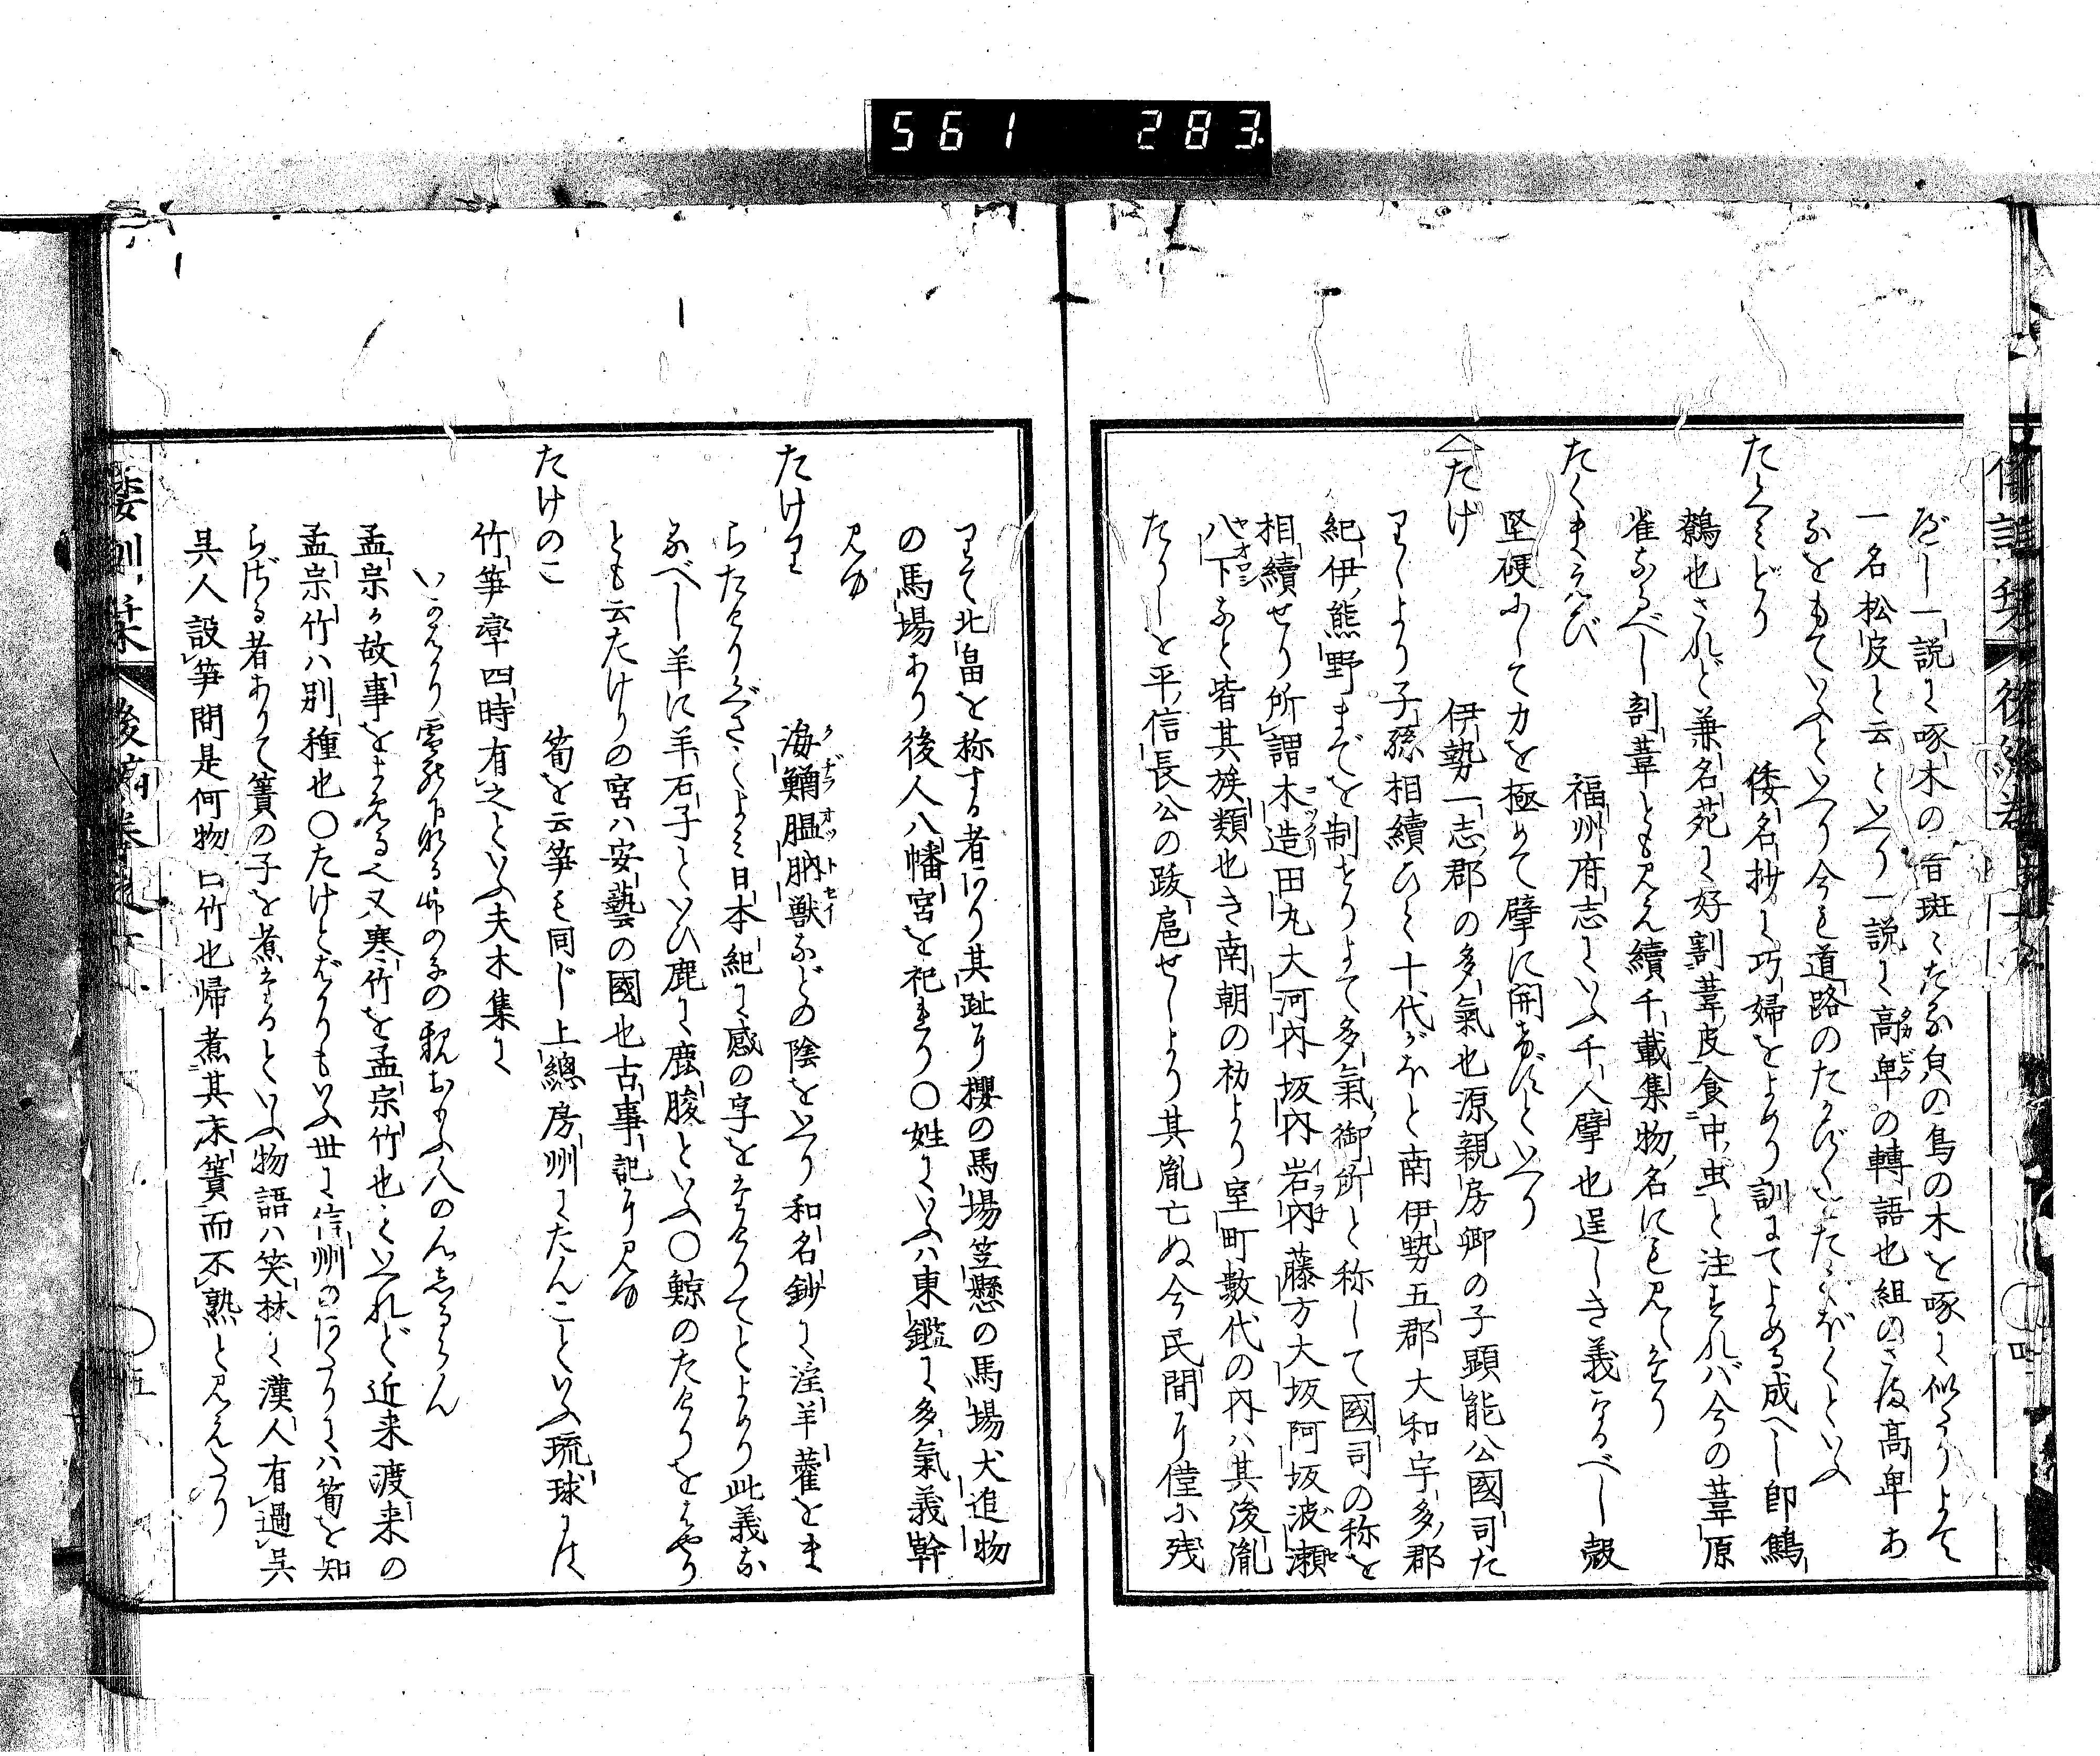 561 283
べし一説に啄木の音斑〻たる貝の鳥の木を啄に似たりよて
一名松皮と云といへり一説に高卑の轉語也組のさま高卑あ
るをもていふといへり今も道路のたかびくをたくぼくといふ
たくみどり 倭名抄に巧婦をよめり訓にてよめる成へし即鷦
鷯也されど兼名苑に好割葦皮食中虫と注すれバ今の葦原
雀なるべし割葦とも見え續千載集物名にも見えたり
たくまえび 福州府志にいふ千人擘也逞しき義なるべし殼
堅硬にして力を極めて擘に開きがたしといへり
たげ 伊勢一志郡の多氣也源親房卿の子顕能公國司た
りしより子孫相續ひて十代がほと南伊勢五郡大和宇多郡
紀伊熊野までを制せりよて多氣御所と称して國司の称を
相續せり所謂木造田丸大河内坂内岩内藤方大坂阿坂波瀬
八下なと皆其族類也き南朝の初より室町數代の内ハ其後胤
たりしを平信長公の跋扈せしより其胤亡ぬ今民間に僅に残
りて北畠を称する者あり其趾に櫻の馬場笠懸の馬場犬追物
の馬場あり後人八幡宮を祀れり〇姓にいふハ東鑑に多氣義幹
見ゆ
たけり 海鰌膃肭獣などの陰をいへり和名鈔に淫羊藿をま
らたけりぐさとよみ日本紀に感の字をたけりてとよめり此義な
るべし羊に羊石子といひ鹿に鹿䘒といふ〇鯨のたけりをはやり
とも云たけりの宮ハ安藝の國也古事記に見ゆ
たけのこ 筍を云笋も同じ上總房州にたんこといふ琉球には
竹笋率四時有之といふ夫木集に
孟宗か故事をよめる也又寒竹を孟宗竹也といへれど近来渡来の
孟宗竹ハ別種也〇たけとばかりもいふ世に信州のあたりにハ筍を知
らざる者ありて簀の子を煮たるといふ物語ハ笑林に漢人有過呉
呉人設笋問是何物曰竹也帰煮其床簀而不熟と見えたり